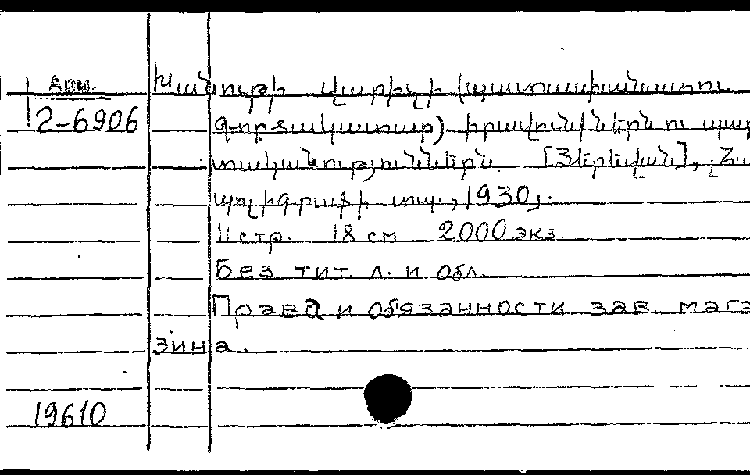 Арм.
2-6906
Խանութի վարիչի (պատասխանատու
գործակատար) իրավունքներն ու պար
տականությունները. [Յերեվան], Հա
պոլիգրաֆի տպ., 1930,.
11 стр. 18 см 2000 экз
Без тит. л. и обл.
Права и обязанности зав. мага
зина.
19610